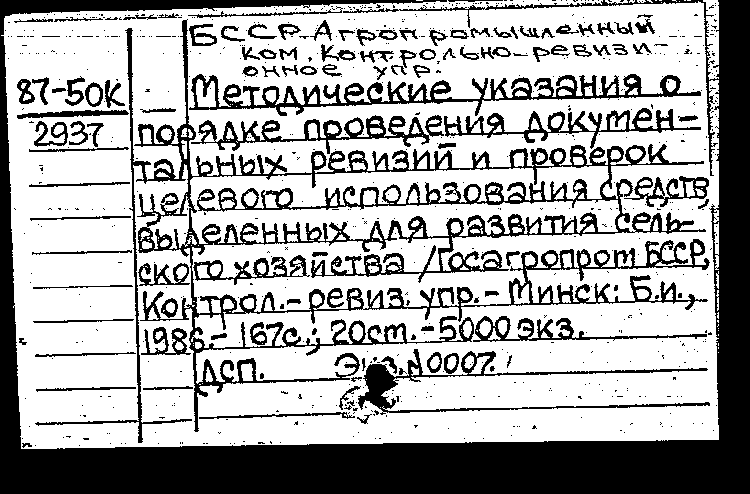 БССР. Агропромышленный
ком. Контрольно-ревизи-
онное упр.
87-50К Методические указания о
2937 порядке проведения докумен-
тальных ревизий и проверок
целевого использования средств,
выделенных для развития сель-
ского хозяйства /Госагропром БССР,
Контрол.-ревиз. упр.-Минск: Б.и.,
1986.- 167с.; 20см.-5000 экз.
ДСП. Экз.N0007.